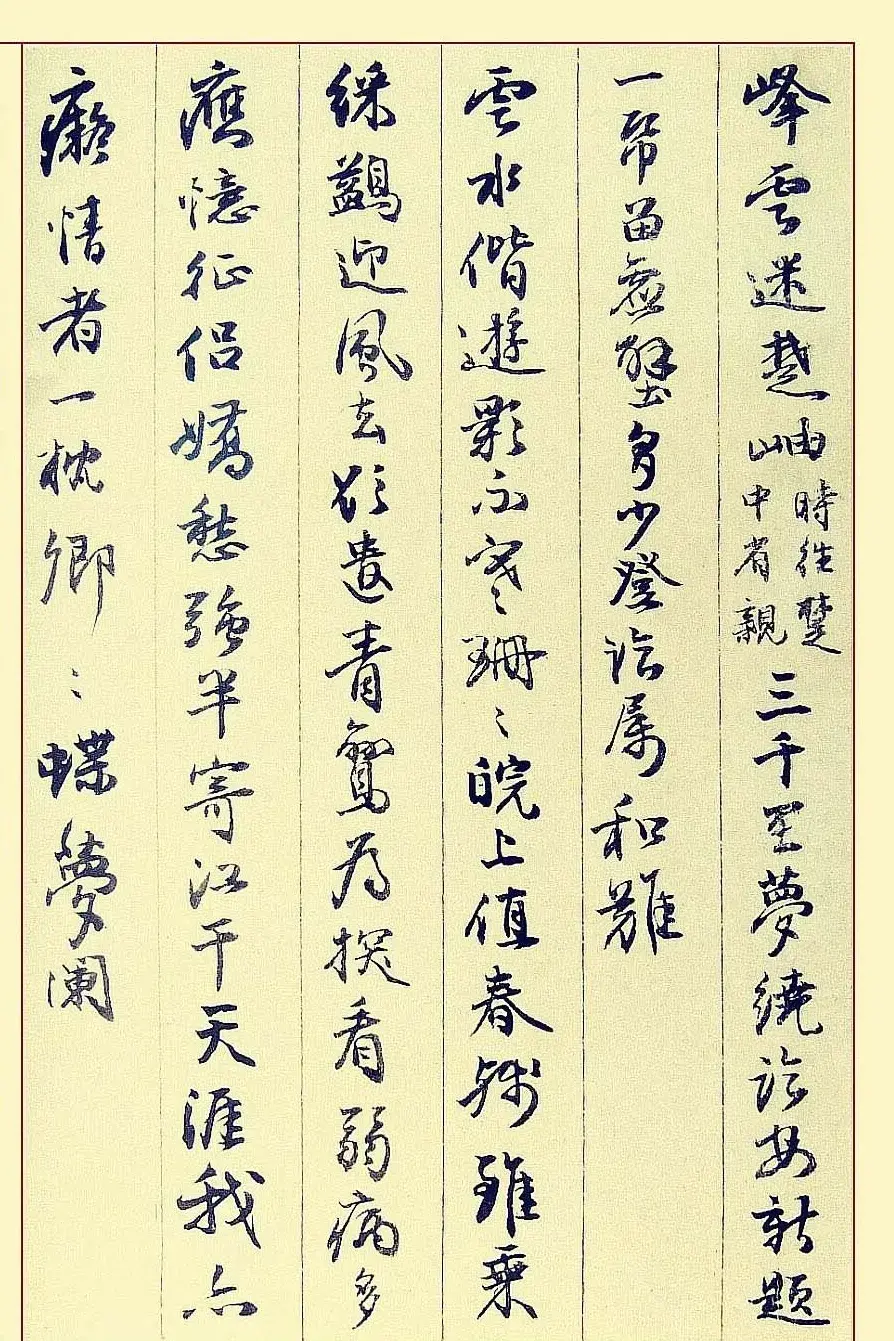 峰雲迷楚岫時往楚中省親三千里夢繞臨安新題
一帋留虛壁多少登臨屬和難
雲水偕遊影不寒珊〻皖上值春殘雖乘
綵鷁迎風去欲遣青鸞為探看弱病多
應憶征侶嬌愁強半寄江干天涯我亦
癡情者一枕卿〻蝶夢瀾